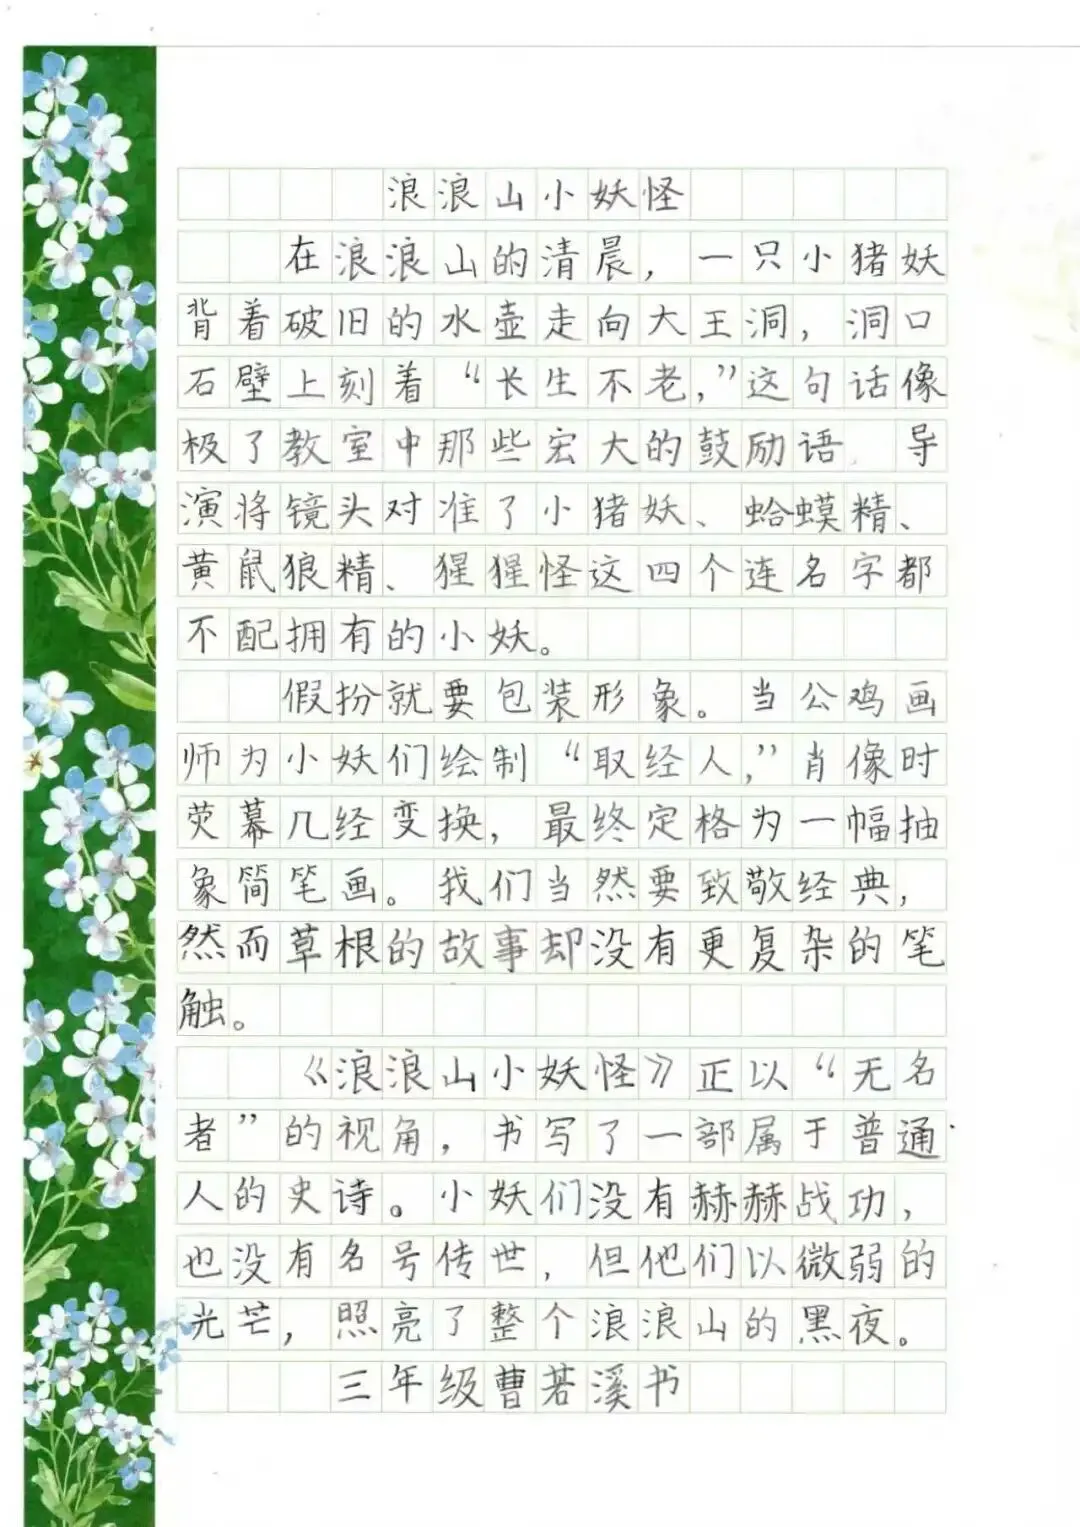 浪浪山小妖怪
在浪浪山的清晨，一只小猪妖
背着破旧的水壶走向大王洞，洞口
石壁上刻着“长生不老，”这句话像
极了教室中那些宏大的鼓励语 导
演将镜头对准了小猪妖、蛤蟆精、
黄鼠狼精、猩猩怪这四个连名字都
不配拥有的小妖。
假扮就要包装形象。当公鸡画
师为小妖们绘制“取经人，”肖像时
荧幕几经变换，最终定格为一幅抽
象简笔画。我们当然要致敬经典，
然而草根的故事却没有更复杂的笔
触。
《浪浪山小妖怪》正以“无名
者”的视角，书写了一部属于普通
人的史诗。小妖们没有赫赫战功，
也没有名号传世，但他们以微弱的
光芒，照亮了整个浪浪山的黑夜。
三年级曹若溪书